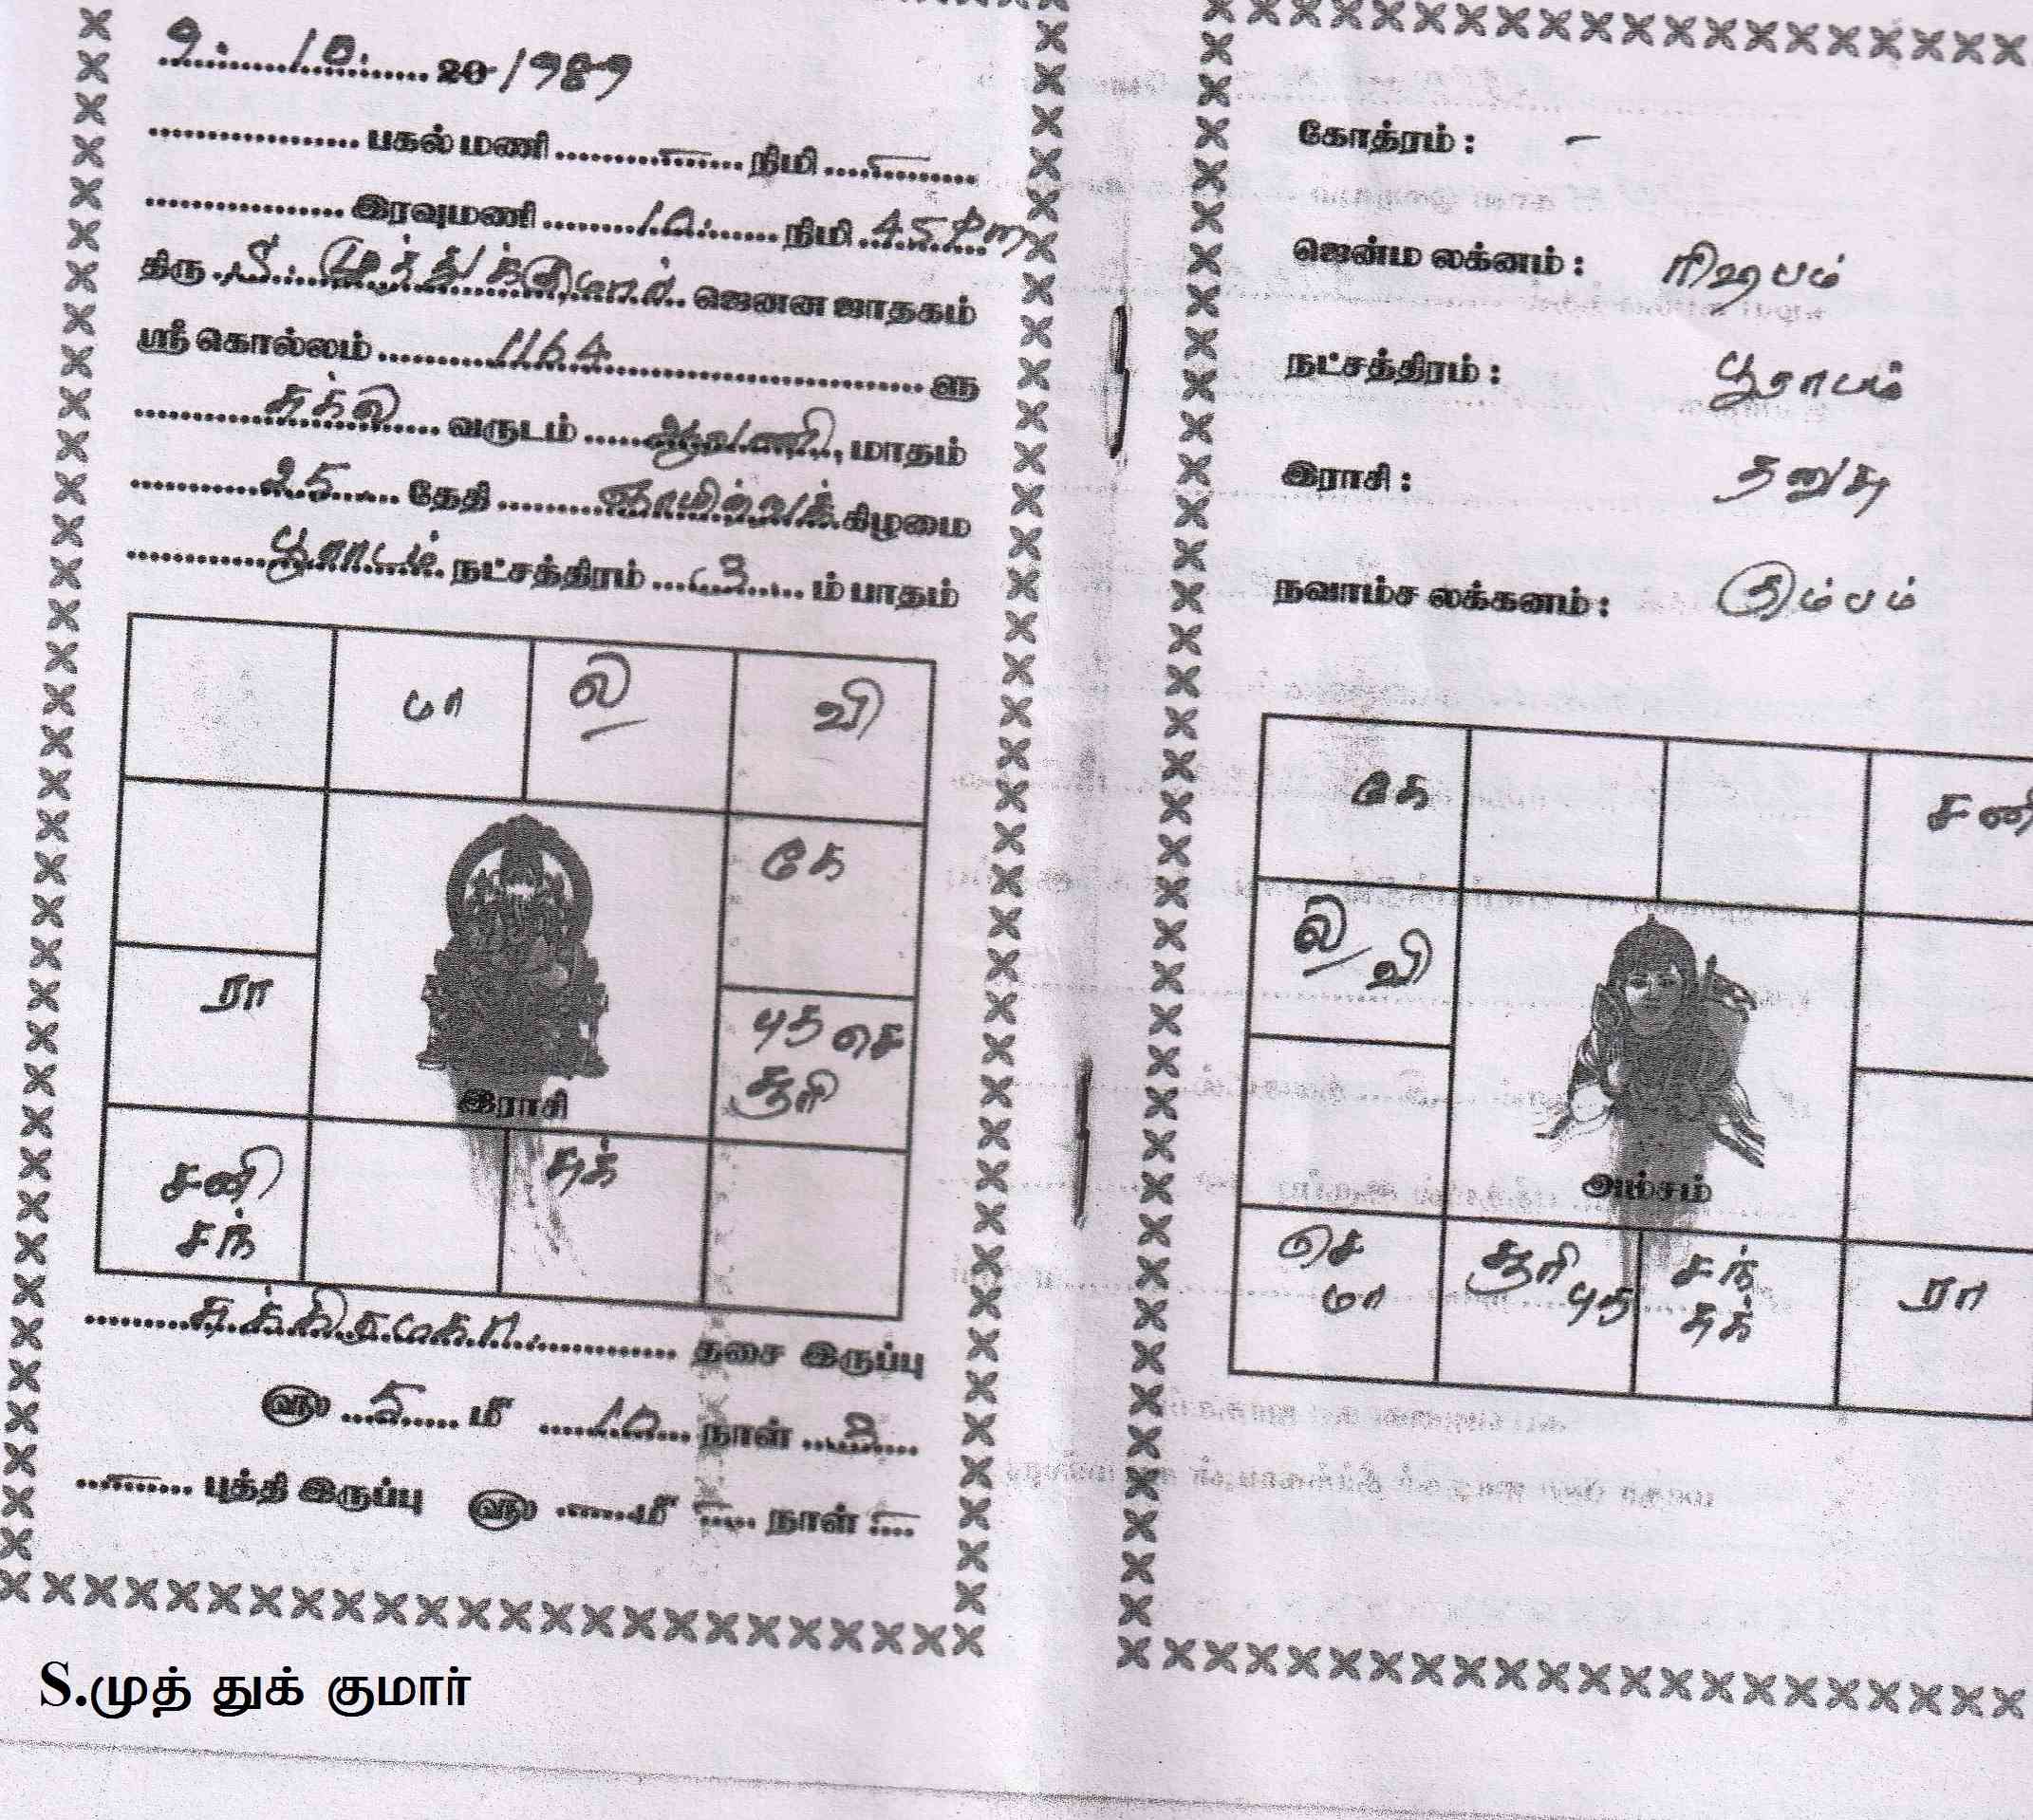 9. 10. 20 1989
பகல் மணி – நிமி –
இரவுமணி 10. நிமி 45 Pm
திரு S. முத்துக்குமார் ஜெனன ஜாதகம்
ஸ்ரீ கொல்லம் 1164 ௵
சுக்ல வருடம் ஆவணி மாதம்
25 தேதி ஞாயிற்றுக் கிழமை
பூராடம் நட்சத்திரம் 3 ம் பாதம்
மா ல வி
கே
ரா
புத செ
சூரி
இராசி
சனி
சந்
சுக்
சுக்கிரமகா தசை இருப்பு
௵ 5 மீ 10 நாள் 3
– புத்தி இருப்பு ௵ மீ – நாள் –
கோத்ரம் : –
ஜென்ம லக்னம் : ரிஷபம்
நட்சத்திரம் : பூராடம்
இராசி : தனுசு
நவாம்ச லக்கனம் : கும்பம்
கே சனி
ல வி
அம்சம்
செ
மா
சூரி புத
சந்
சுக்
ரா
S.முத் துக் குமார்